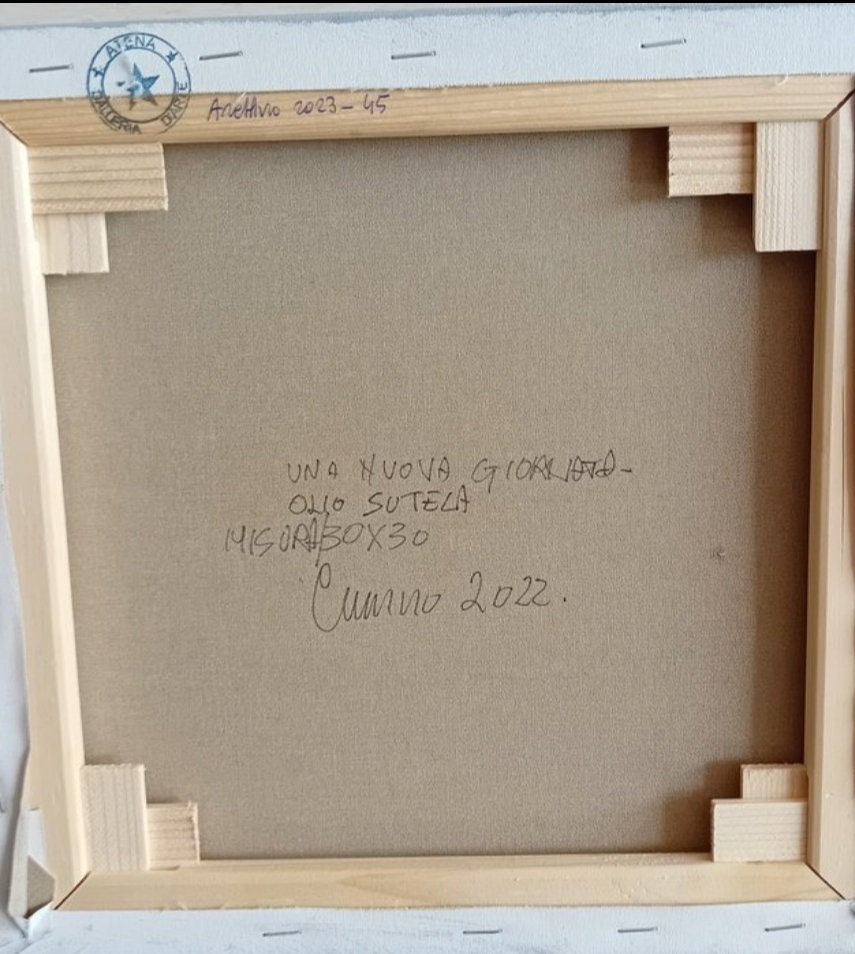 ATENA
GALLERIA D'ARTE
Archivio 2023-45
UNA NUOVA GIORNATA-
OLIO SUTELA
MISURA 30X30
2022.